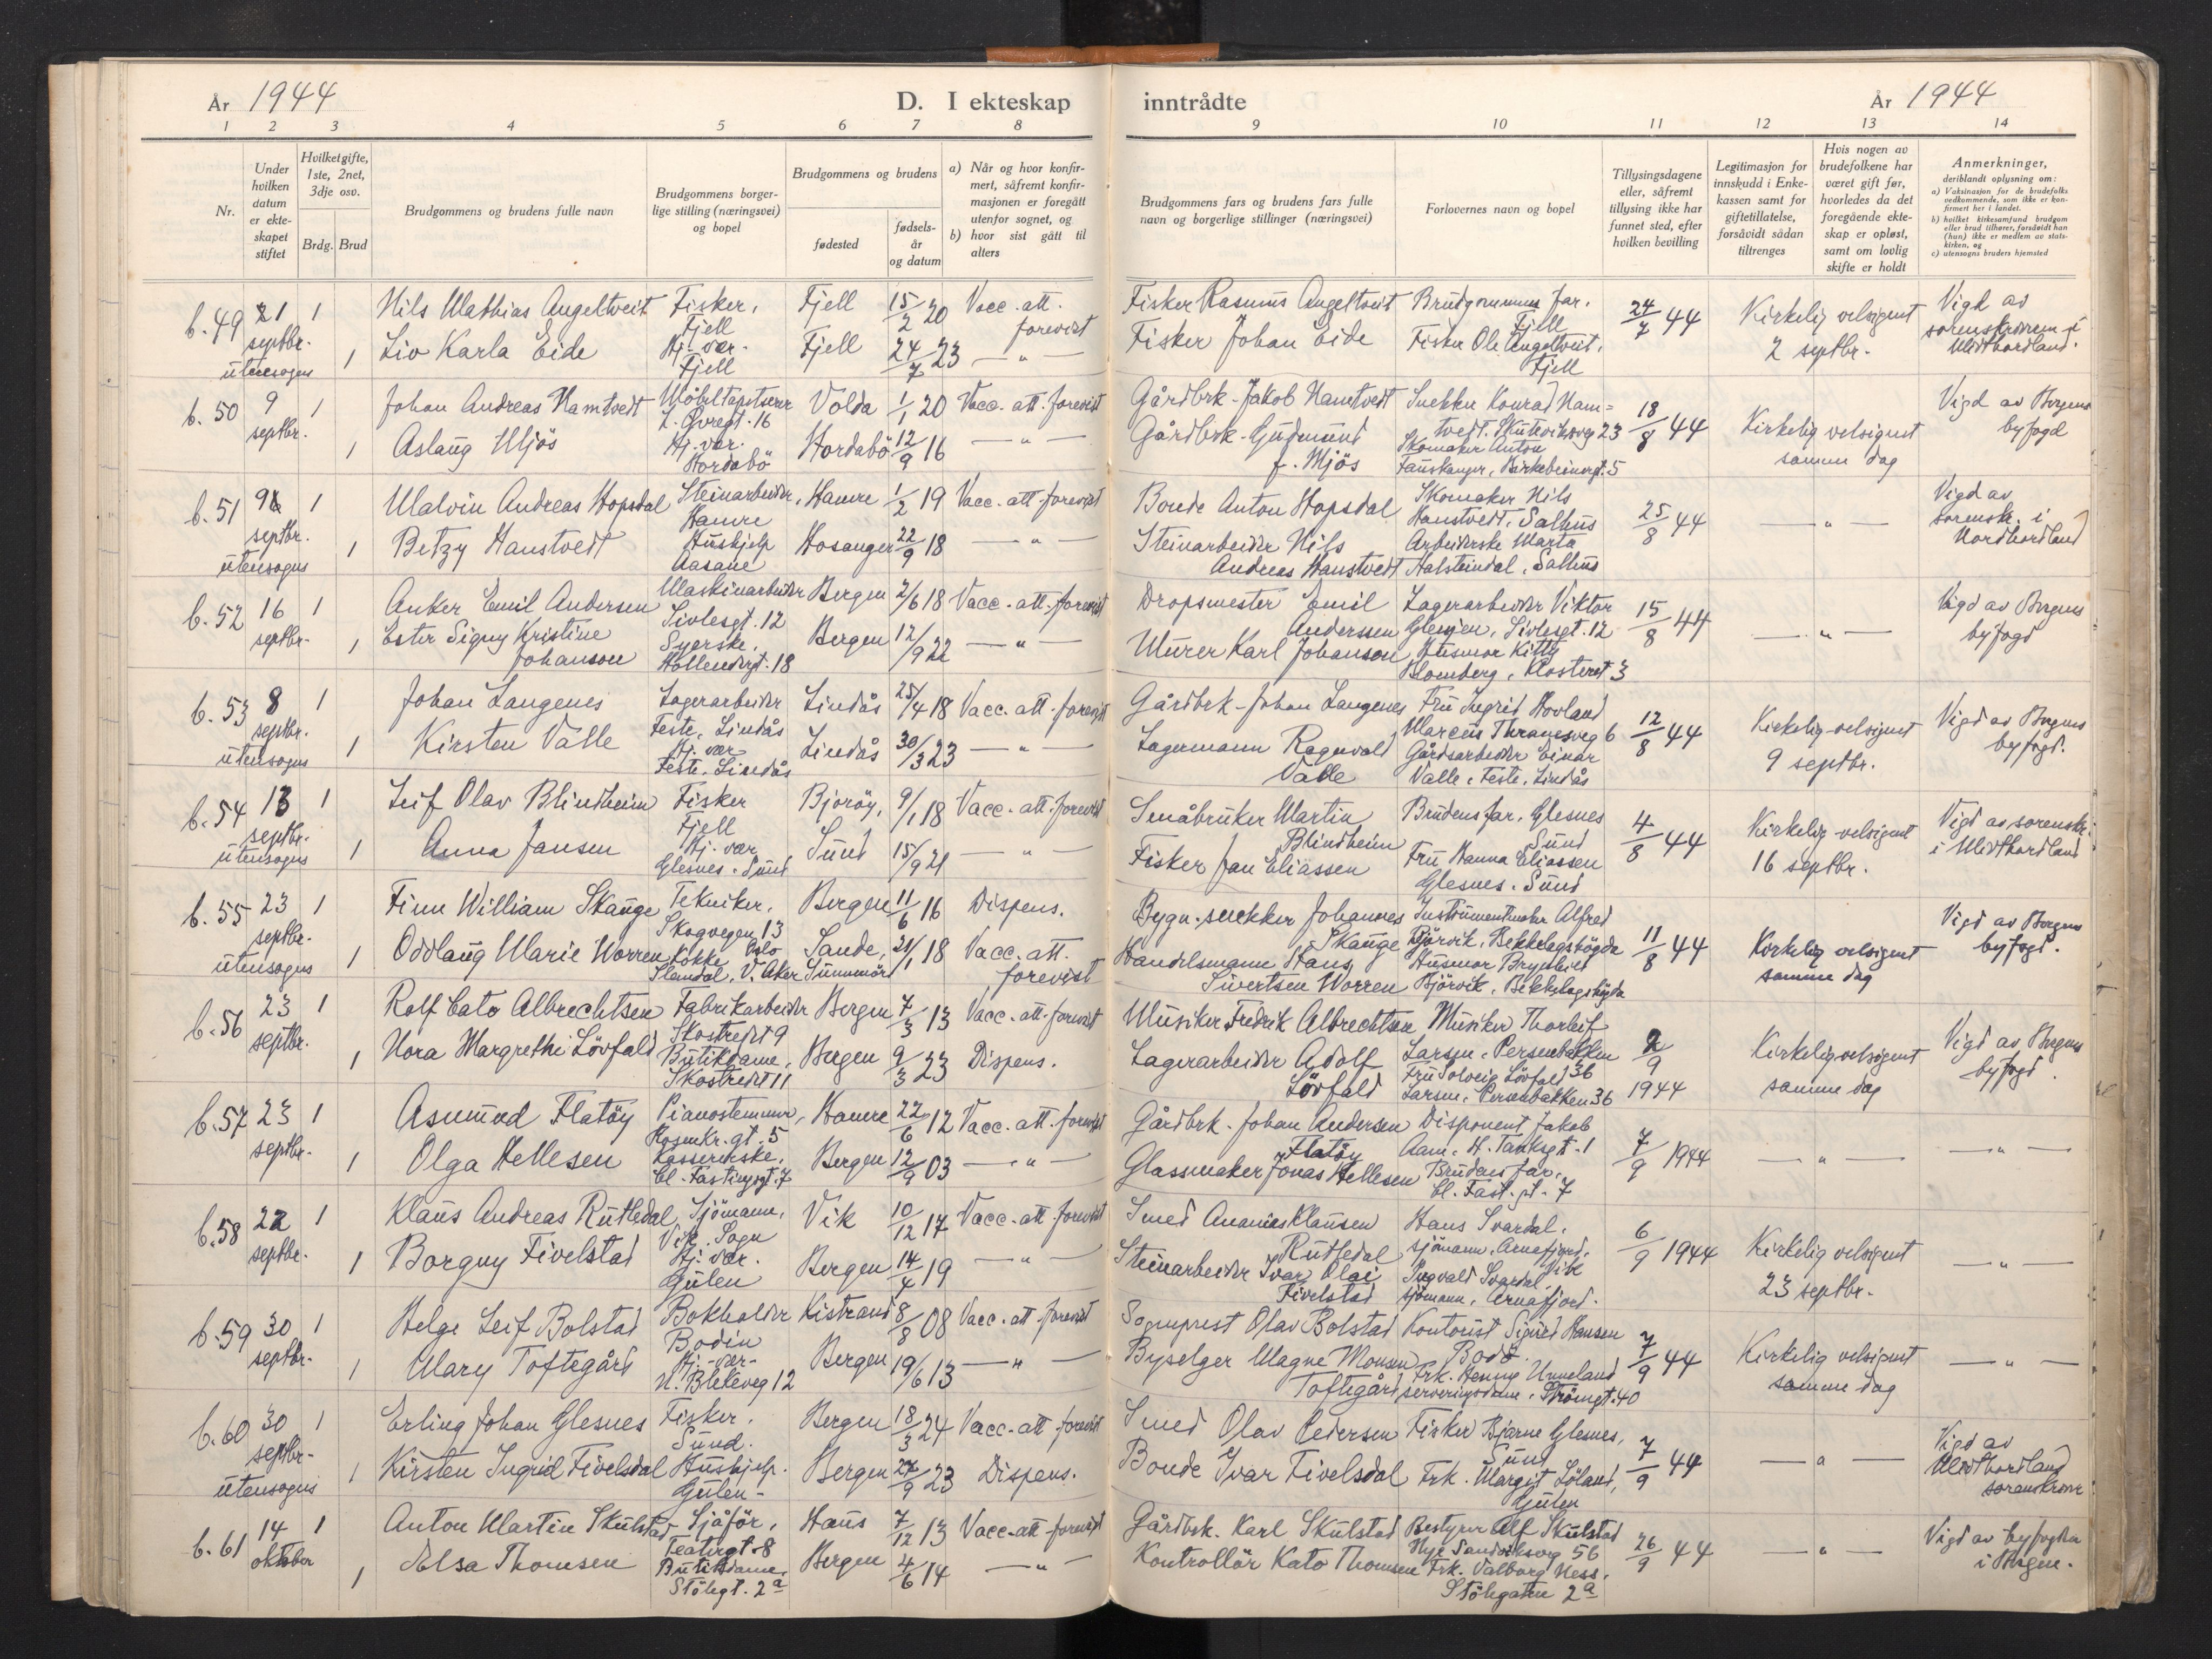 År 1944
D. I ekteskap
inntrådte
År 1944
1 2 3 4 5 6 7 8
9 10 11 12 13 14
Nr.
Under hvilken datum er ekteskapet stiftet
Hvilket gifte, 1ste, 2net, 3dje osv.
Brdg. Brud
Brudgommens og brudens fulle navn
Brudgommens borgerlige stilling (næringsvei) og bopel
Brudgommens og brudens
fødested
fødselsår og datum
a) Når og hvor konfirmert, såfremt konfirmasjonen er foregått utenfor sognet, og
b) hvor sist gått til alters
Brudgommens fars og brudens fars fulle navn og borgerlige stillinger (næringsvei)
Forlovernes navn og bopel
Tillysingsdagene eller, såfremt tillysing ikke har funnet sted, efter hvilken bevilling
Legitimasjon for innskudd i Enkekassen samt for giftetillatelse, forsåvidt sådan tiltrenges
Hvis nogen av brudefolkene har været gift før, hvorledes da det foregående ekteskap er opløst, samt om lovlig skifte er holdt
Anmerkninger, deriblandt oplysning om:
a) Vaksinasjon for de brudefolks vedkommende, som ikke er konfirmert her i landet.
b) hvilket kirkesamfund brudgom eller brud tilhører, forsåvidt han (hun) ikke er medlem av statskirken, og
c) utensogns bruders hjemsted
b. 49 21 septbr. utensogns 1 Nils Mathias Angeltveit Fisker, Fjell Fjell 15/2 20 Vacc. att. forevist
1 Liv Karla Eide Hj. vær. Fjell Fjell 24/7 23 — " —
Fisker Rasmus Angeltveit Brudgommens far. Fjell 24/7 44 Kirkelig velsignet 2 septbr. Vigd av sorenskriveren i Midthordland.
Fisker Johan Eide Fisker Ole Angeltveit, Fjell
b. 50 9 septbr. 1 Johan Andreas Hamtvedt Möbeltapetserer L. Øvregt. 16 Volda 1/1 20 Vacc. att. forevist
1 Aslaug Mjös Hj. vær. Hordabö Hordabö 12/9 16 — " —
Gårdbrk. Jakob Hamtvedt Snekker Konrad Hamtvedt. Skuteviksveg 23 18/8 44 Kirkelig velsignet samme dag Vigd av Bergens byfogd
Gårdbrk. Gudmund f. Mjös Skomaker Anton Fauskanger, Birkebeinergt. 5
b. 51 9 septbr. utensogns 1 Malvin Andreas Hopsdal Steinarbeider, Hamre Hamre 1/2 19 Vacc. att. forevist
1 Betzy Hanstvedt Hushjelp Aasane Hosanger 22/9 18 — " —
Bonde Anton Hopsdal Skomaker Nils Hanstvedt, Salhus 25/8 44 — " — Vigd av sorensk. i Nordhordland
Steinarbeider Nils Andreas Hanstvedt Arbeiderske Marta Halsteindal, Salhus
b. 52 16 septbr. 1 Anker Emil Andersen Maskinarbeider Sivlesgt. 12 Bergen 2/6 18 Vacc. att. forevist
1 Ester Signy Kristine Johanson Syerske, Hollendergt. 18 Bergen 12/9 22 — " —
Dropsmester Emil Anderssen Lagerarbeider Viktor Glenjen, Sivlesgt. 12 15/8 44 — " — Vigd av Bergens byfogd
Murer Karl Johanson Husmor Kitty Blomberg, Klosteret 3
b. 53 8 septbr. utensogns 1 Johan Langenes Lagerarbeider Feste, Lindås Lindås 25/4 18 Vacc. att. forevist
1 Kirsten Valle Hj. vær Feste, Lindås Lindås 30/3 23 — " —
Gårdbrk. Johan Langenes Fru Ingrid Hovland Marcus Thranesveg 6 12/8 44 Kirkelig velsignet 9 septbr. Vigd av Bergens byfogd.
Lagermann Ragnvald Valle Gårdsarbeider Einar Valle, Feste, Lindås
b. 54 13 septbr. utensogns 1 Leif Olav Blindheim Fisker Fjell Bjoröy, 9/1 18 Vacc. att. forevist
1 Anna Jansen Hj. vær Glesnes. Sund Sund 15/9 21 — " —
Småbruker Martin Blindheim Brudens far, Glesnes Sund 4/8 44 Kirkelig velsignet 16 septbr. Vigd av sorenskr. i Midthordland
Fisker Jan Eliassen Fru Hanna Eliassen Glesnes, Sund
b. 55 23 septbr. utensogns 1 Finn William Skauge Tekniker, Skogvegen 13 Oslo Bergen 11/6 16 Dispens.
1 Oddlaug Marie Worren Kokke Slemdal, V. Aker Sande, Sunnmöre 21/1 18 Vacc. att. forevist
Bygn. snekker Johannes Skauge Instrumentmaker Alfred Björvik, Bekkelagshögda 11/8 44 Kirkelig velsignet samme dag Vigd av Bergens byfogd.
Handelsmann Hans Sivertsen Worren Husmor Brynhild Björvik, Bekkelagshögda
b. 56 23 septbr. 1 Rolf Cato Albrechtsen Fabrikarbeider Skostredet 9 Bergen 7/3 13 Vacc. att. forevist
1 Nora Margrethe Lövfald Butikdame, Skostredet 11 Bergen 9/3 23 Dispens.
Musiker Fredrik Albrechtsen Musiker Thorleif Larsen, Persenbakken 36 2/9 1944 Kirkelig velsignet samme dag Vigd av Bergens byfogd.
Lagerarbeider Adolf Lövfald Fru Solveig Lövfald Larsen, Persenbakken 36
b. 57 23 septbr. 1 Asmund Flatöy Pianostemmer, Rosenkr. gt. 5 Hamre 22/6 12 Vacc. att. forevist
1 Olga Hellesen Kassererske, Cl. Fastingsgt. 7 Bergen 12/9 03 — " —
Gårdbrk. Johan Andersen Flatöy Disponent Jakob Aam, H. Tanksgt. 1 7/9 1944 — " — — " —
Glassmaker Jonas Hellesen Brudens far, Cl. Fast. gt. 7
b. 58 22 septbr. 1 Klaus Andreas Rutledal Sjömann, Vik, Sogn Vik 10/12 17 Vacc. att. forevist
1 Borgny Fivelstad Hj. vær. Gulen Bergen 14/4 19 — " —
Smed Ananias Klausen Rutledal Hans Svardal, sjömann, Arnafjord, Vik 6/9 1944 Kirkelig velsignet 23 septbr. — " —
Steinarbeider Ivar Olai Fivelstad Ingvald Svardal sjömann, Arnafjord.
b. 59 30 septbr. 1 Helge Leif Bolstad Bokholder Bodin Kistrand 8/8 08 Vacc. att. forevist
1 Mary Toftegård Hj. vær. N. Blekeveg 12 Bergen 19/6 13 — " —
Sogneprest Olav Bolstad Kontorist Sigurd Hansen Bodö 7/9 44 Kirkelig velsignet samme dag — " —
Byselger Magne Monsen Toftegård Frk. Henny Unneland serveringsdame, Strömgt. 40
b. 60 30 septbr. utensogns 1 Erling Johan Glesnes Fisker, Sund. Bergen 18/3 24 Vacc. att. forevist
1 Kirsten Ingrid Fivelsdal Hushjelp. Gulen Bergen 27/9 23 Dispens.
Smed Olav Pedersen Fisker Bjarne Glesnes, Sund 7/9 44 — " — Vigd av Midthordland sorenskriver
Bonde Ivar Fivelsdal Frk. Margit Löland, Gulen
b. 61 14 oktober 1 Anton Martin Skulstad Sjåför, Teatergt. 8 Haus 7/12 13 Vacc. att. forevist
1 Elsa Thomsen Butikdame, Stölegt. 2a Bergen 4/6 14 — " —
Gårdbrk. Karl Skulstad Bestyrer Alf Skulstad Nye Sandviksveg 56 26/9 44 — " — Vigd av byfogden i Bergen.
Kontrollör Kato Thomsen Frk. Valborg Ness, Stölegaten 2a